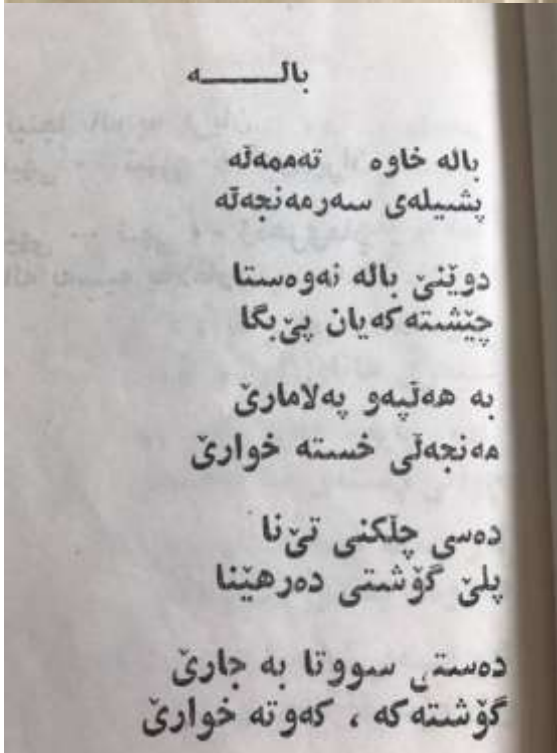 بالـــــه
باله خاوه تهممهڵه
پشیلهی سهرمهنجهڵه
دوێنێ باله نهوهستا
چێشتهکهیان پێ بگا
به ههڵپهو پهلامارێ
مهنجهڵی خسته خوارێ
دهسی چڵکنی تێ نا
پلێ گۆشتی دهرهێنا
دهستی سووتا به جارێ
گۆشتهکه ، کهوته خوارێ